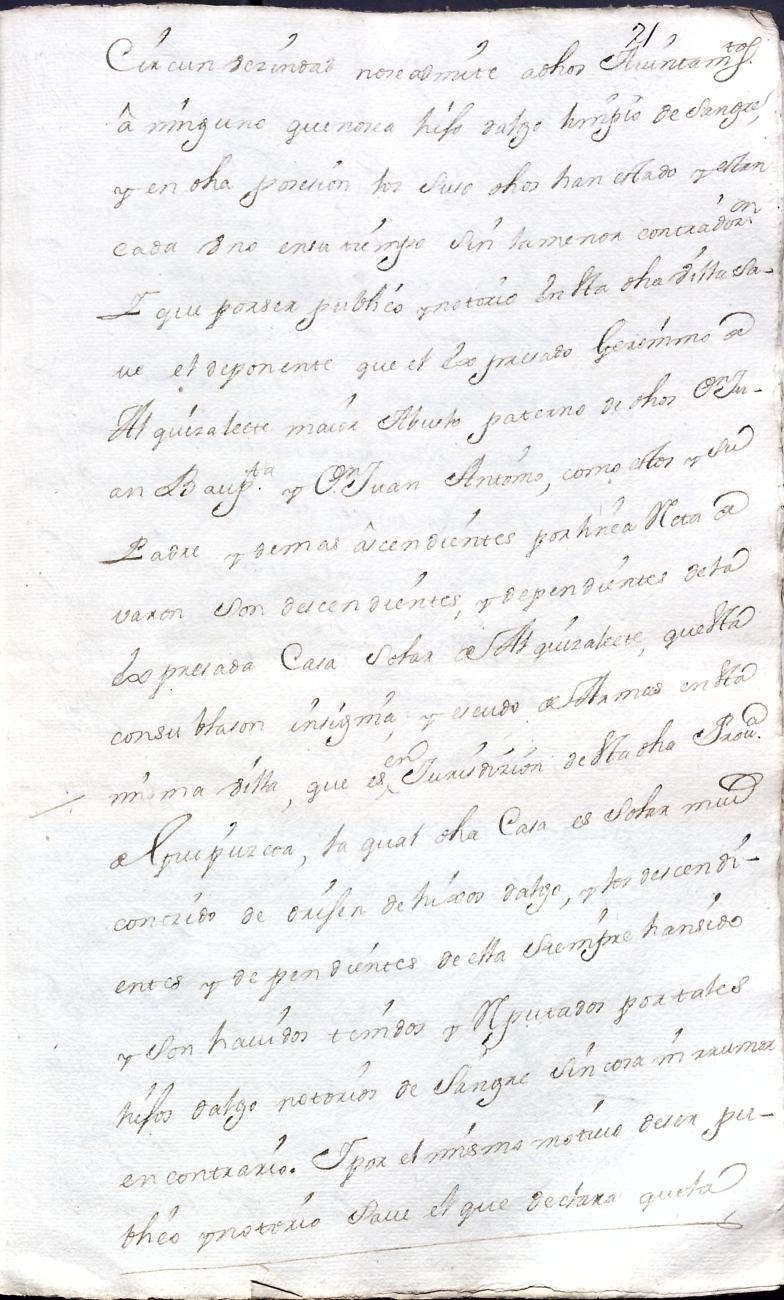 21
Circun vezindad nose admite adhos Aiuntamtos.
â ninguno que nosea hijo dalgo limpio de sangre,
y en dha posesion los suso dhos han estado y estan
cada vno ensu tiempo sin lamenor contradizon.
I que porser publico ynotorio en esta dha villa sa-
ve el deponente que el Expresado Geronimo de
Alquizalecte maior Abuelo paterno de dhos Dn Ju-
an Baupta. y Dn Juan Antonio, como estos y su
Padre y demas âscendientes por linea Recta de
varon son descendientes, y dependientes dela
Expresada Casa Solar de Alquizalecte, questa
consu blason insignia, y escudo de Armas en esta
misma villa, que es en Jurisdizion de esta dha Prova.
de Guipuzcoa, la qual dha Casa es Solar mui
conozido de orijen de hixos dalgo, y los descendi-
entes y dependientes de ella siempre hansido
y son havidos tenidos y Reputados por tales
hijos dalgo notorios de Sangre sin cosa ni rrumor
en contrario. I por el mismo motivo deser pu-
blico ynotorio save el que declara quela